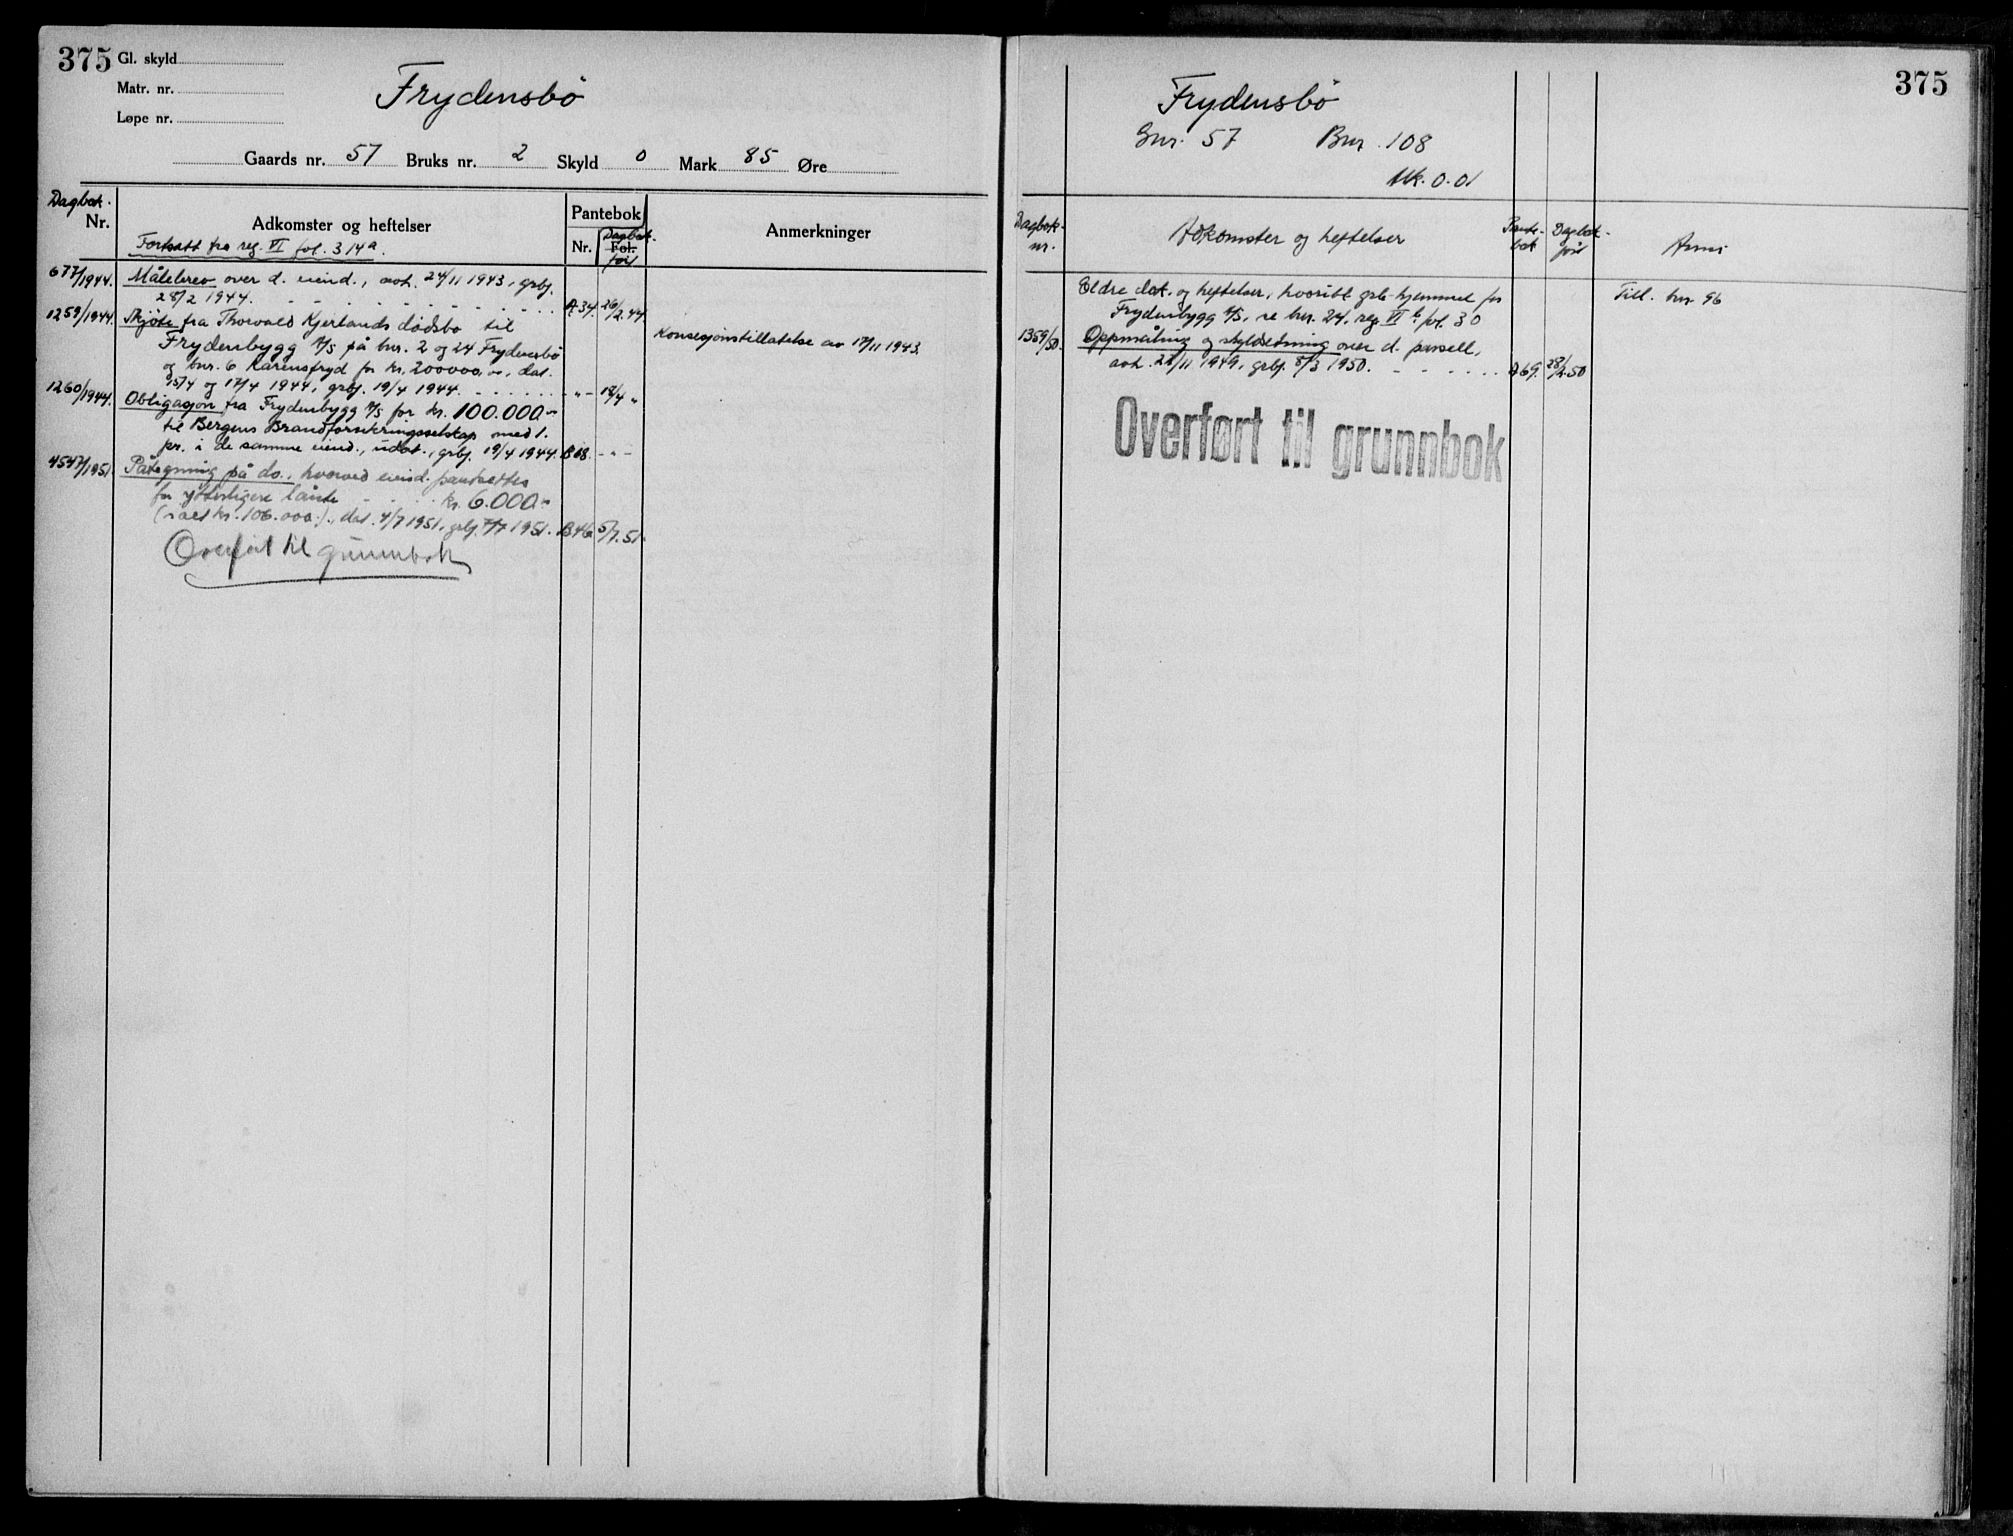 375
Gl. skyld
Matr. nr.
Løpe nr.
Frydensbö
Gaards nr. 57 Bruks nr. 2 Skyld 0 Mark 85 Øre
Dagbok.
Nr.
Adkomster og heftelser
Fortsatt fra reg. VI fol. 314a.
Pantebok
Nr.
Dagbok.
Fol.
føil
Anmerkninger
677/1944. Målebrev over d. eiend., avh. 24/11 1943, grbj.
28/2 1944. A 34. 26/2.44.
1259/1944. Skjöte fra Thorvald Kjerlands dödsbo til
Frydenbygg A/S på bnr. 2 og 24 Frydensbö
Konsesjonstillatelse av 17/11 1943.
og bnr. 6 Karensfryd for kr. 200000,00, dat.
15/4 og 17/4 1944, grbj. 19/4 1944. - " - 19/4 "
1260/1944. Obligasjon fra Frydenbygg A/S for kr. 100.000.-
til Bergens Brandforsikringsselskap med 1.
pr. i de samme eiend., udat., grbj. 19/4 1944. B 08. - " -
4547/1951. Påtegning på do., hvorved eiend. pantsettes
for ytterligere lånte kr. 6.000.-
(ialt kr. 106.000.-), dat. 4/7 1951, grbj. 7/7 1951. B 46. 5/7.51.
Overført til grunnbok
375
Frydensbö
Gnr. 57 Bnr. 108
Mk. 0.01
Dagbok-
nr.
Adkomster og heftelser
Pante-
bok
Dagbok-
føil
Anm:
Eldre dok. og heftelser, hvoribl. grb. hjemmel for
Till. bnr. 96
Frydenbygg A/S, se bnr. 24, reg. VI b. fol. 30
1359/50. Oppmåling og skylddeling over d. parsell,
avh. 21/11 1949, grbj. 8/3 1950. A 69. 28/2.50
Overført til grunnbok